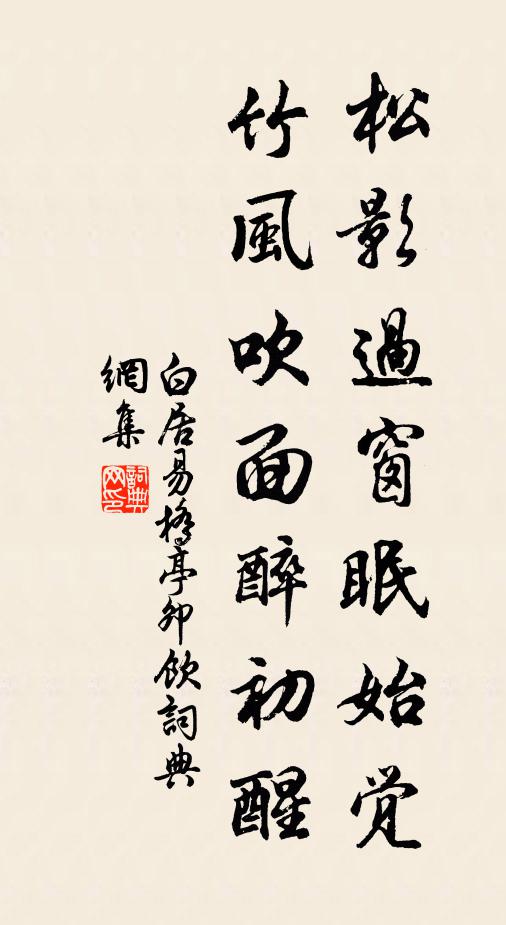 松影過窗眠始觉
竹風吹面醉初醒
白居易橋亭卯飲詞典
網集
詞典网印